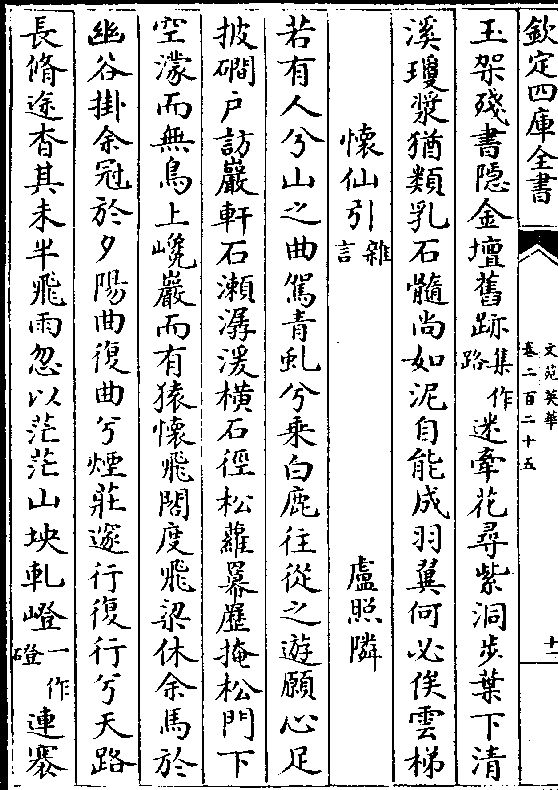 欽定四庫全書
文苑英華
卷二百二十五
十一
玉架殘書隠金壇舊跡集作路迷牽花尋紫洞步葉下清
溪瓊漿猶類乳石髓尚如泥自能成羽翼何必俟雲梯
懷仙引雜言 盧照隣
若有人兮山之曲駕青虬兮乘白鹿往從之遊願心足
披磵户訪巖軒石瀬潺湲横石徑松蘿羃䍥掩松門下
空濛而無鳥上巉巖而有猿懷飛閣度飛梁休余馬於
幽谷掛余冠於夕陽曲復曲兮煙莊邃行復行兮天路
長脩途杳其未半飛雨忽以茫茫山坱軋嶝一作磴連褰